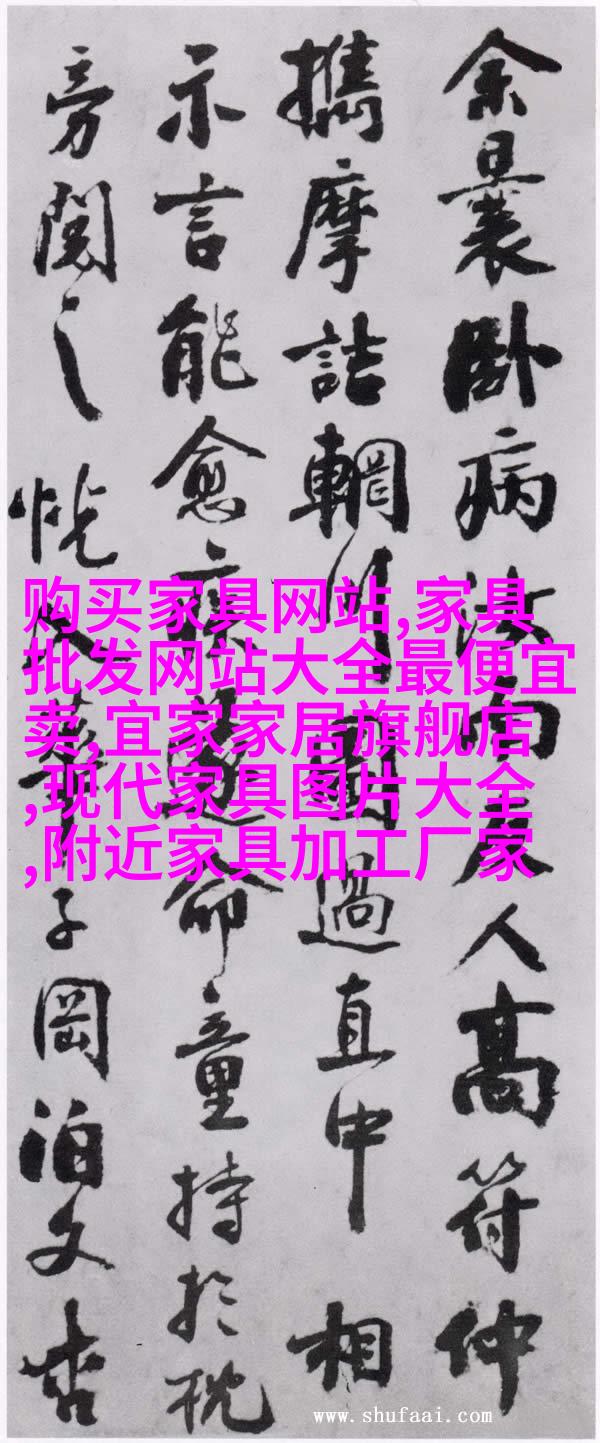 余曩卧病汝南友人高符仲
攜摩詰輞川圖過直中相
示言能愈疾遂命童持於枕
旁閱之恍入華子岡泊文杏
购买家具网站,家具
批发网站大全最便宜
卖,宜家家居旗舰店
,现代家具图片大全
,附近家具加工厂家
www.shufaai.com